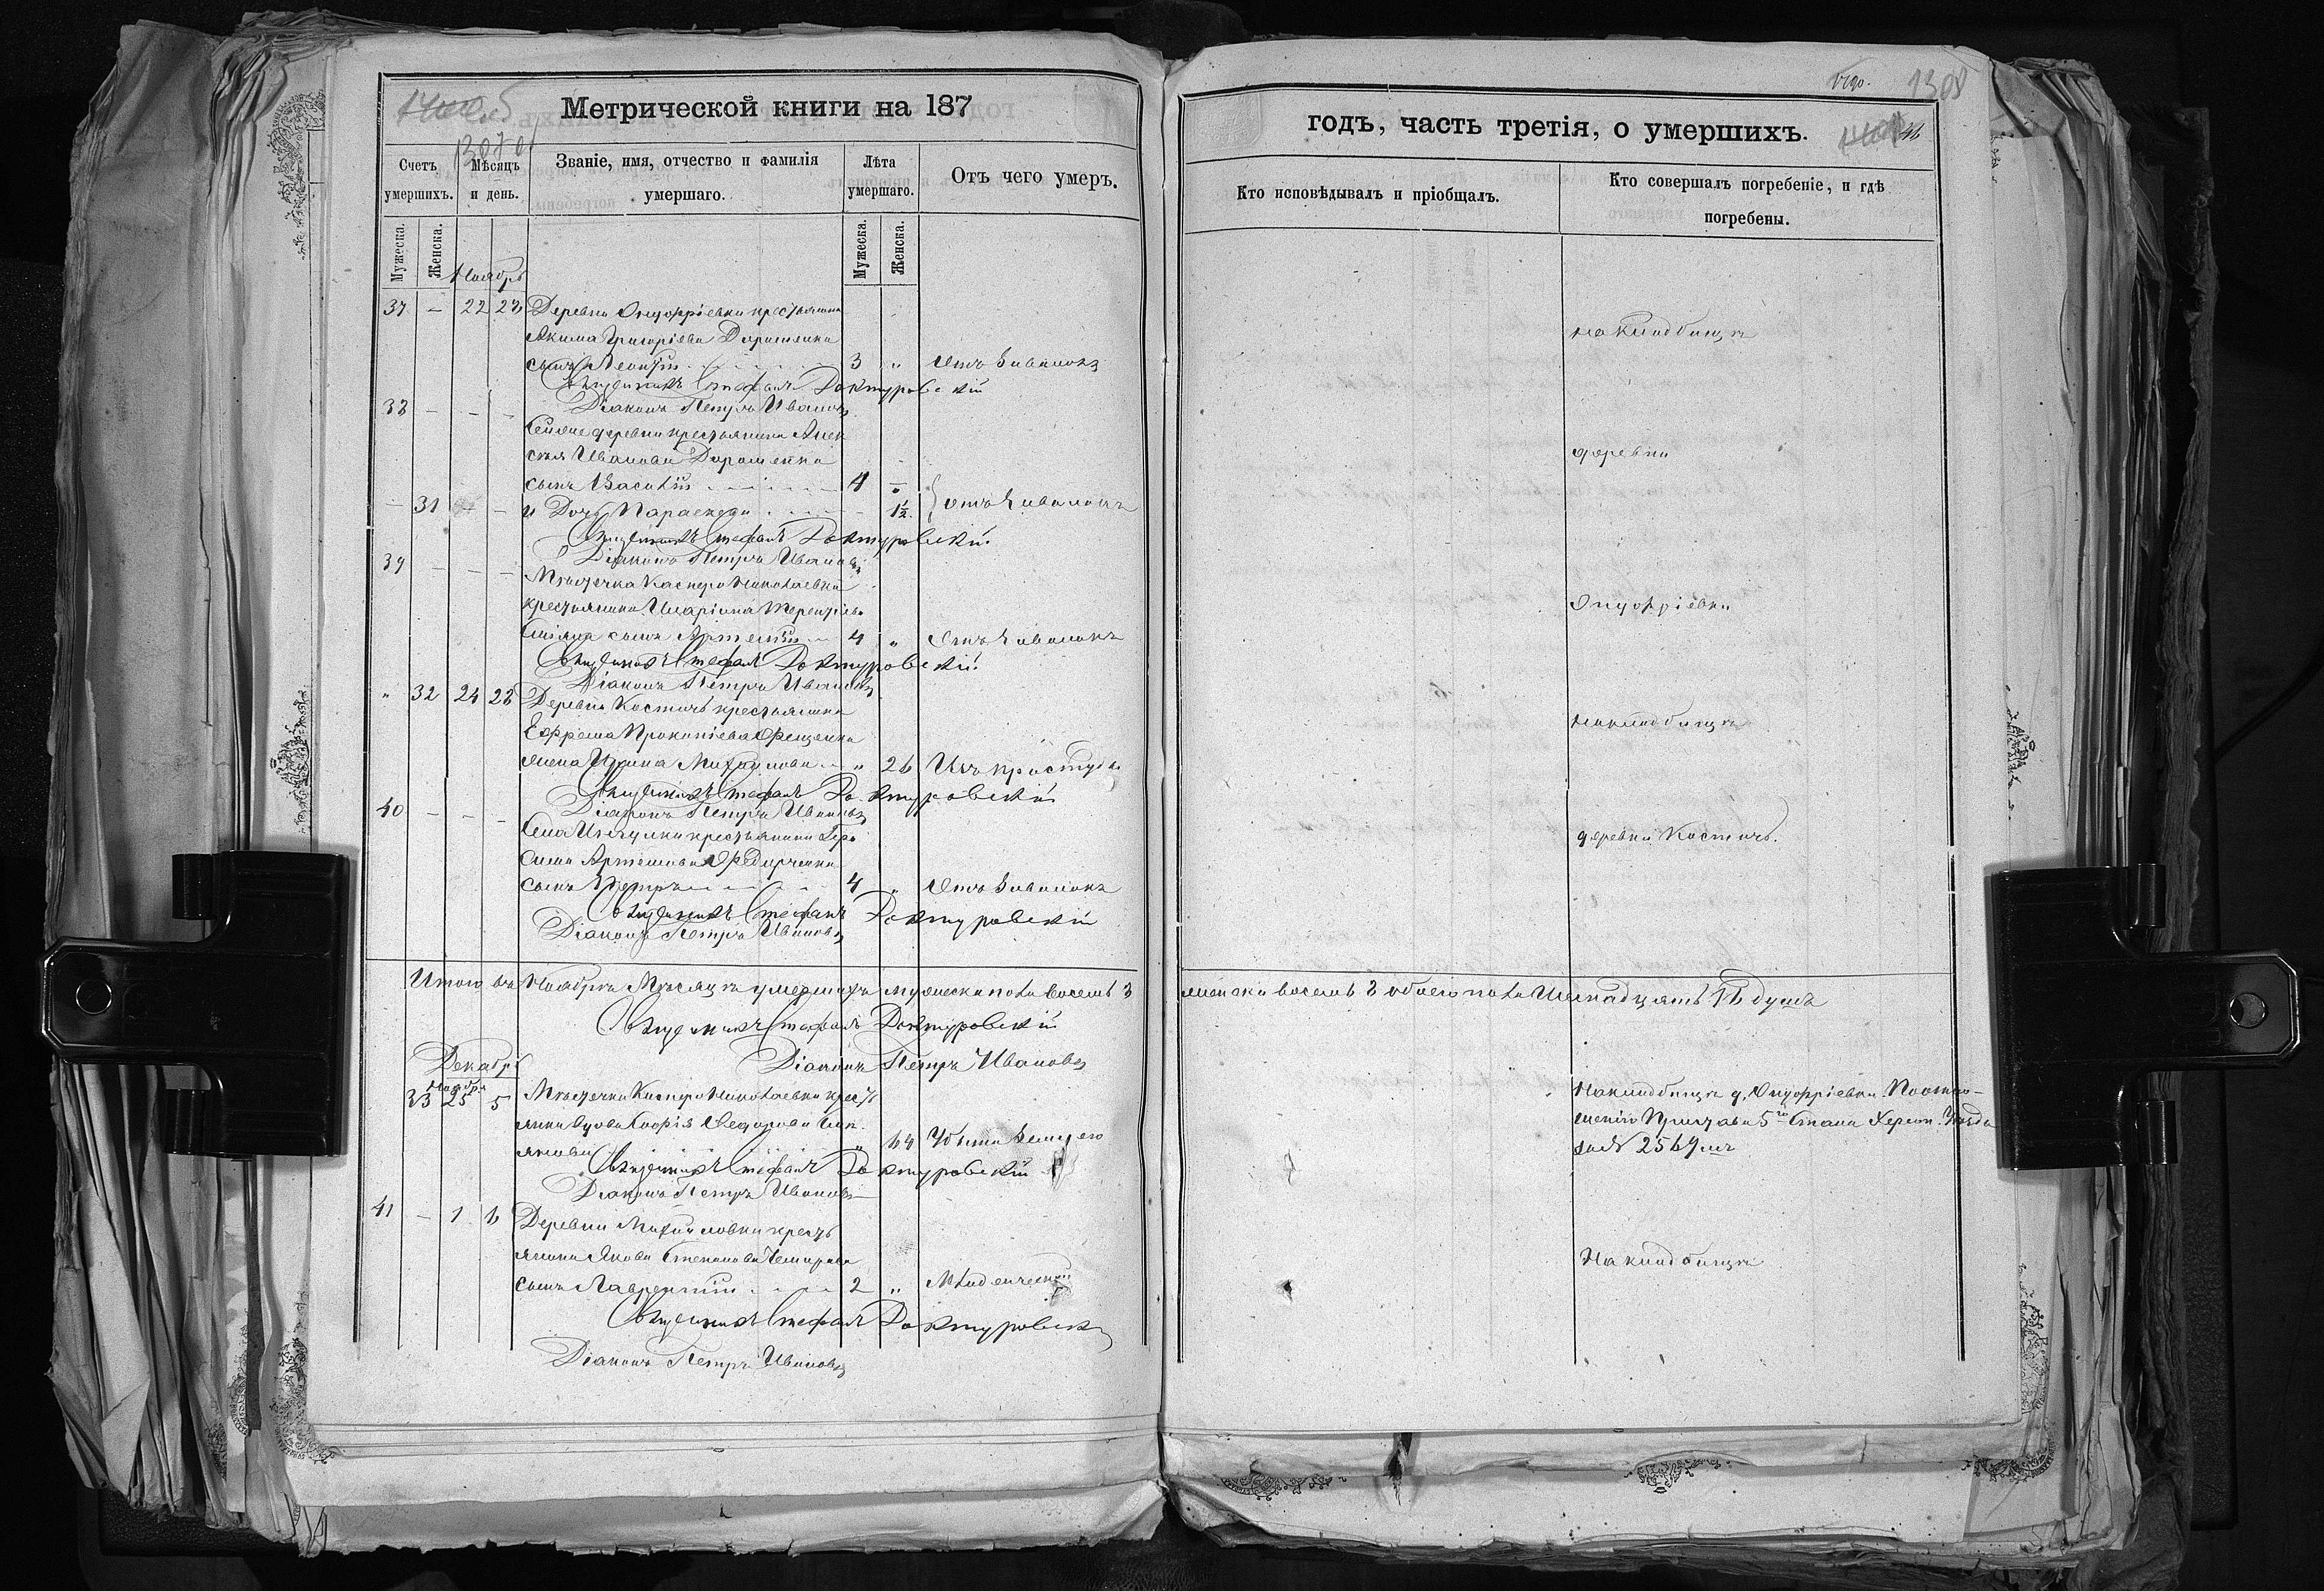 1307 об
Метрической книги на 187
Счетъ умершихъ.
Мѣсяцъ и день.
Званіе, имя, отчество и фамилія умершаго.
Лѣта умершаго.
Отъ чего умеръ.
Мужеска.
Женска.
Мужеска.
Женска.
Ноябрь
37 – 22 23 Деревни Онуфріевки крестьянина
Якима Григоріева Дорошенка
сынъ Леонтій 3 „ Отъ Жабинокъ
Священникъ Стефанъ Доктуровскій
Діаконъ Петръ Ивановъ
38 – – –
Сейже деревни крестьянина Алек
сѣя Иванова Дорошенка
сынъ Василій 4 –
– 31 – – и Дочь Параскева – 1½ отъ Жабинокъ
Священникъ Стефанъ Доктуровскій
Діаконъ Петръ Ивановъ
39 – – –
Мѣстечка Касперо Николаевки
крестьянина Иларіона Терентіева
сынъ Артемій 4 „ Отъ Жабинокъ
Священникъ Стефанъ Доктуровскій
Діаконъ Петръ Ивановъ
„ 32 24 28 Деревни Костичъ крестьянина
Ефрема Прокопіева Фещенка
жена Ирина Михайлова „ 26 Изъ простуды
Священникъ Стефанъ Доктуровскій
Діаконъ Петръ Ивановъ
40 – – –
Села крестьянина Гера
сима Артемова Федорченка
сынъ Петръ 4 „ Отъ Жабинокъ
Священникъ Стефанъ Доктуровскій
Діаконъ Петръ Ивановъ
Итого въ Ноябрѣ Мѣсяцѣ умершихъ мужеска пола восемь 8
Священникъ Стефанъ Доктуровскій
Діаконъ Петръ Ивановъ
Декабрь
Ноября
33 25 5 Мѣстечка Касперо Николаевки крест
янка вдова Софія Федорова
„ 64 Убита
Священникъ Стефанъ Доктуровскій
Діаконъ Петръ Ивановъ
41 – 1 6 Деревни Михайловки кресть
янина Якова Степанова
сынъ Лаврентій 2 „ Младенческой
Священникъ Стефанъ Доктуровскій
Діаконъ Петръ Ивановъ
1308
годъ, часть третія, о умершихъ.
46
Кто исповѣдывалъ и пріобщалъ.
Кто совершалъ погребеніе, и гдѣ погребены.
на кладбищѣ
деревни
Онуфріевки
на кладбищѣ
деревни Костичъ.
женска восемь 8 обоего пола Шестнадцать 16 душъ
На кладбищѣ д. Онуфріевки. По отно-
шенію Пристава 5го Стана Херсон. Уѣзда
за №
На кладбищѣ